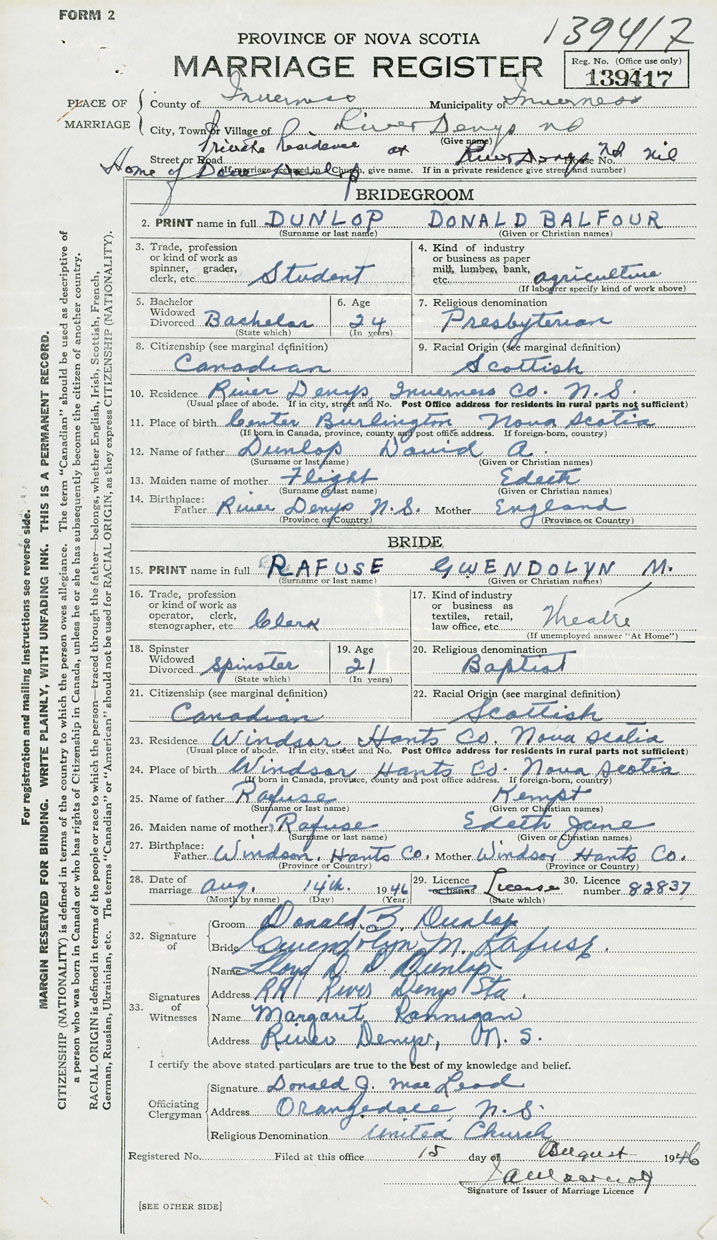 FORM 2
139417
PROVINCE OF NOVA SCOTIA
MARRIAGE REGISTER
Reg. No. (Office use only)
139417
PLACE OF MARRIAGE
County of Inverness Municipality of Inverness
City, Town or Village of River Denys
(Give name)
Private Residence at River Denys NS
Street or Road House No. nil
Home of Dave Dunlop
(If marriage occurred in Church, give name. If in a private residence give street and number)
BRIDEGROOM
2. PRINT name in full DUNLOP DONALD BALFOUR
(Surname or last name) (Given or Christian names)
3. Trade, profession or kind of work as spinner, grader, clerk, etc. Student
4. Kind of industry or business as paper mill, lumber, bank, etc. agriculture
(If labourer specify kind of work above)
5. Bachelor Widowed Divorced Bachelor
(State which)
6. Age 24
(In years)
7. Religious denomination
Presbyterian
8. Citizenship (see marginal definition)
Canadian
9. Racial Origin (see marginal definition)
Scottish
10. Residence River Denys Inverness Co. N.S.
(Usual place of abode. If in city, street and No. Post Office address for residents in rural parts not sufficient)
11. Place of birth Center Burlington Nova Scotia
(If born in Canada, province, county and post office address. If foreign-born, country)
12. Name of father Dunlop David A.
(Surname or last name) (Given or Christian names)
13. Maiden name of mother Flight Edeth
(Surname or last name) (Given or Christian names)
14. Birthplace: Father River Denys N.S. Mother England
(Province or Country) (Province or Country)
BRIDE
15. PRINT name in full RAFUSE GWENDOLYN M.
(Surname or last name) (Given or Christian names)
16. Trade, profession or kind of work as operator, clerk, stenographer, etc. Clerk
17. Kind of industry or business as textiles, retail, law office, etc. Theatre
(If unemployed answer "At Home")
18. Spinster Widowed Divorced Spinster
(State which)
19. Age 21
(In years)
20. Religious denomination
Baptist
21. Citizenship (see marginal definition)
Canadian
22. Racial Origin (see marginal definition)
Scottish
23. Residence Windsor Hants Co. Nova Scotia
(Usual place of abode. If in city, street and No. Post Office address for residents in rural parts not sufficient)
24. Place of birth Windsor Hants Co. Nova Scotia
(If born in Canada, province, county and post office address. If foreign-born, country)
25. Name of father Rafuse Kempt
(Surname or last name) (Given or Christian names)
26. Maiden name of mother Rafuse Edeth Jane
(Surname or last name) (Given or Christian names)
27. Birthplace: Father Windsor, Hants Co. Mother Windsor Hants Co.
(Province or Country) (Province or Country)
28. Date of marriage Aug. 14th. 1946
(Month by name) (Day) (Year)
29. Licence or banns License
(State which)
30. Licence number 82837
32. Signature of
Groom Donald B. Dunlop
Bride Gwendolyn M. Rafuse.
33. Signatures of Witnesses
Name Lloyd D. D. Dunlop
Address RR1 River Denys Sta.
Name Margaret Rannigan
Address River Denys, N.S.
I certify the above stated particulars are true to the best of my knowledge and belief.
Officiating Clergyman
Signature Donald J. MacLeod
Address Orangedale, N.S.
Religious Denomination United Church
Registered No. Filed at this office 15 day of August 1946
Signature of Issuer of Marriage Licence
[SEE OTHER SIDE]
For registration and mailing instructions see reverse side.
MARGIN RESERVED FOR BINDING. WRITE PLAINLY, WITH UNFADING INK. THIS IS A PERMANENT RECORD.
CITIZENSHIP (NATIONALITY) is defined in terms of the country to which the person owes allegiance. The term "Canadian" should be used as descriptive of
a person who was born in Canada or who has rights of Citizenship in Canada, unless he or she has subsequently become the citizen of another country.
RACIAL ORIGIN is defined in terms of the people or race to which the person—traced through the father—belongs, whether English, Irish, Scottish, French,
German, Russian, Ukrainian, etc. The terms "Canadian" or "American" should not be used for RACIAL ORIGIN, as they express CITIZENSHIP (NATIONALITY).